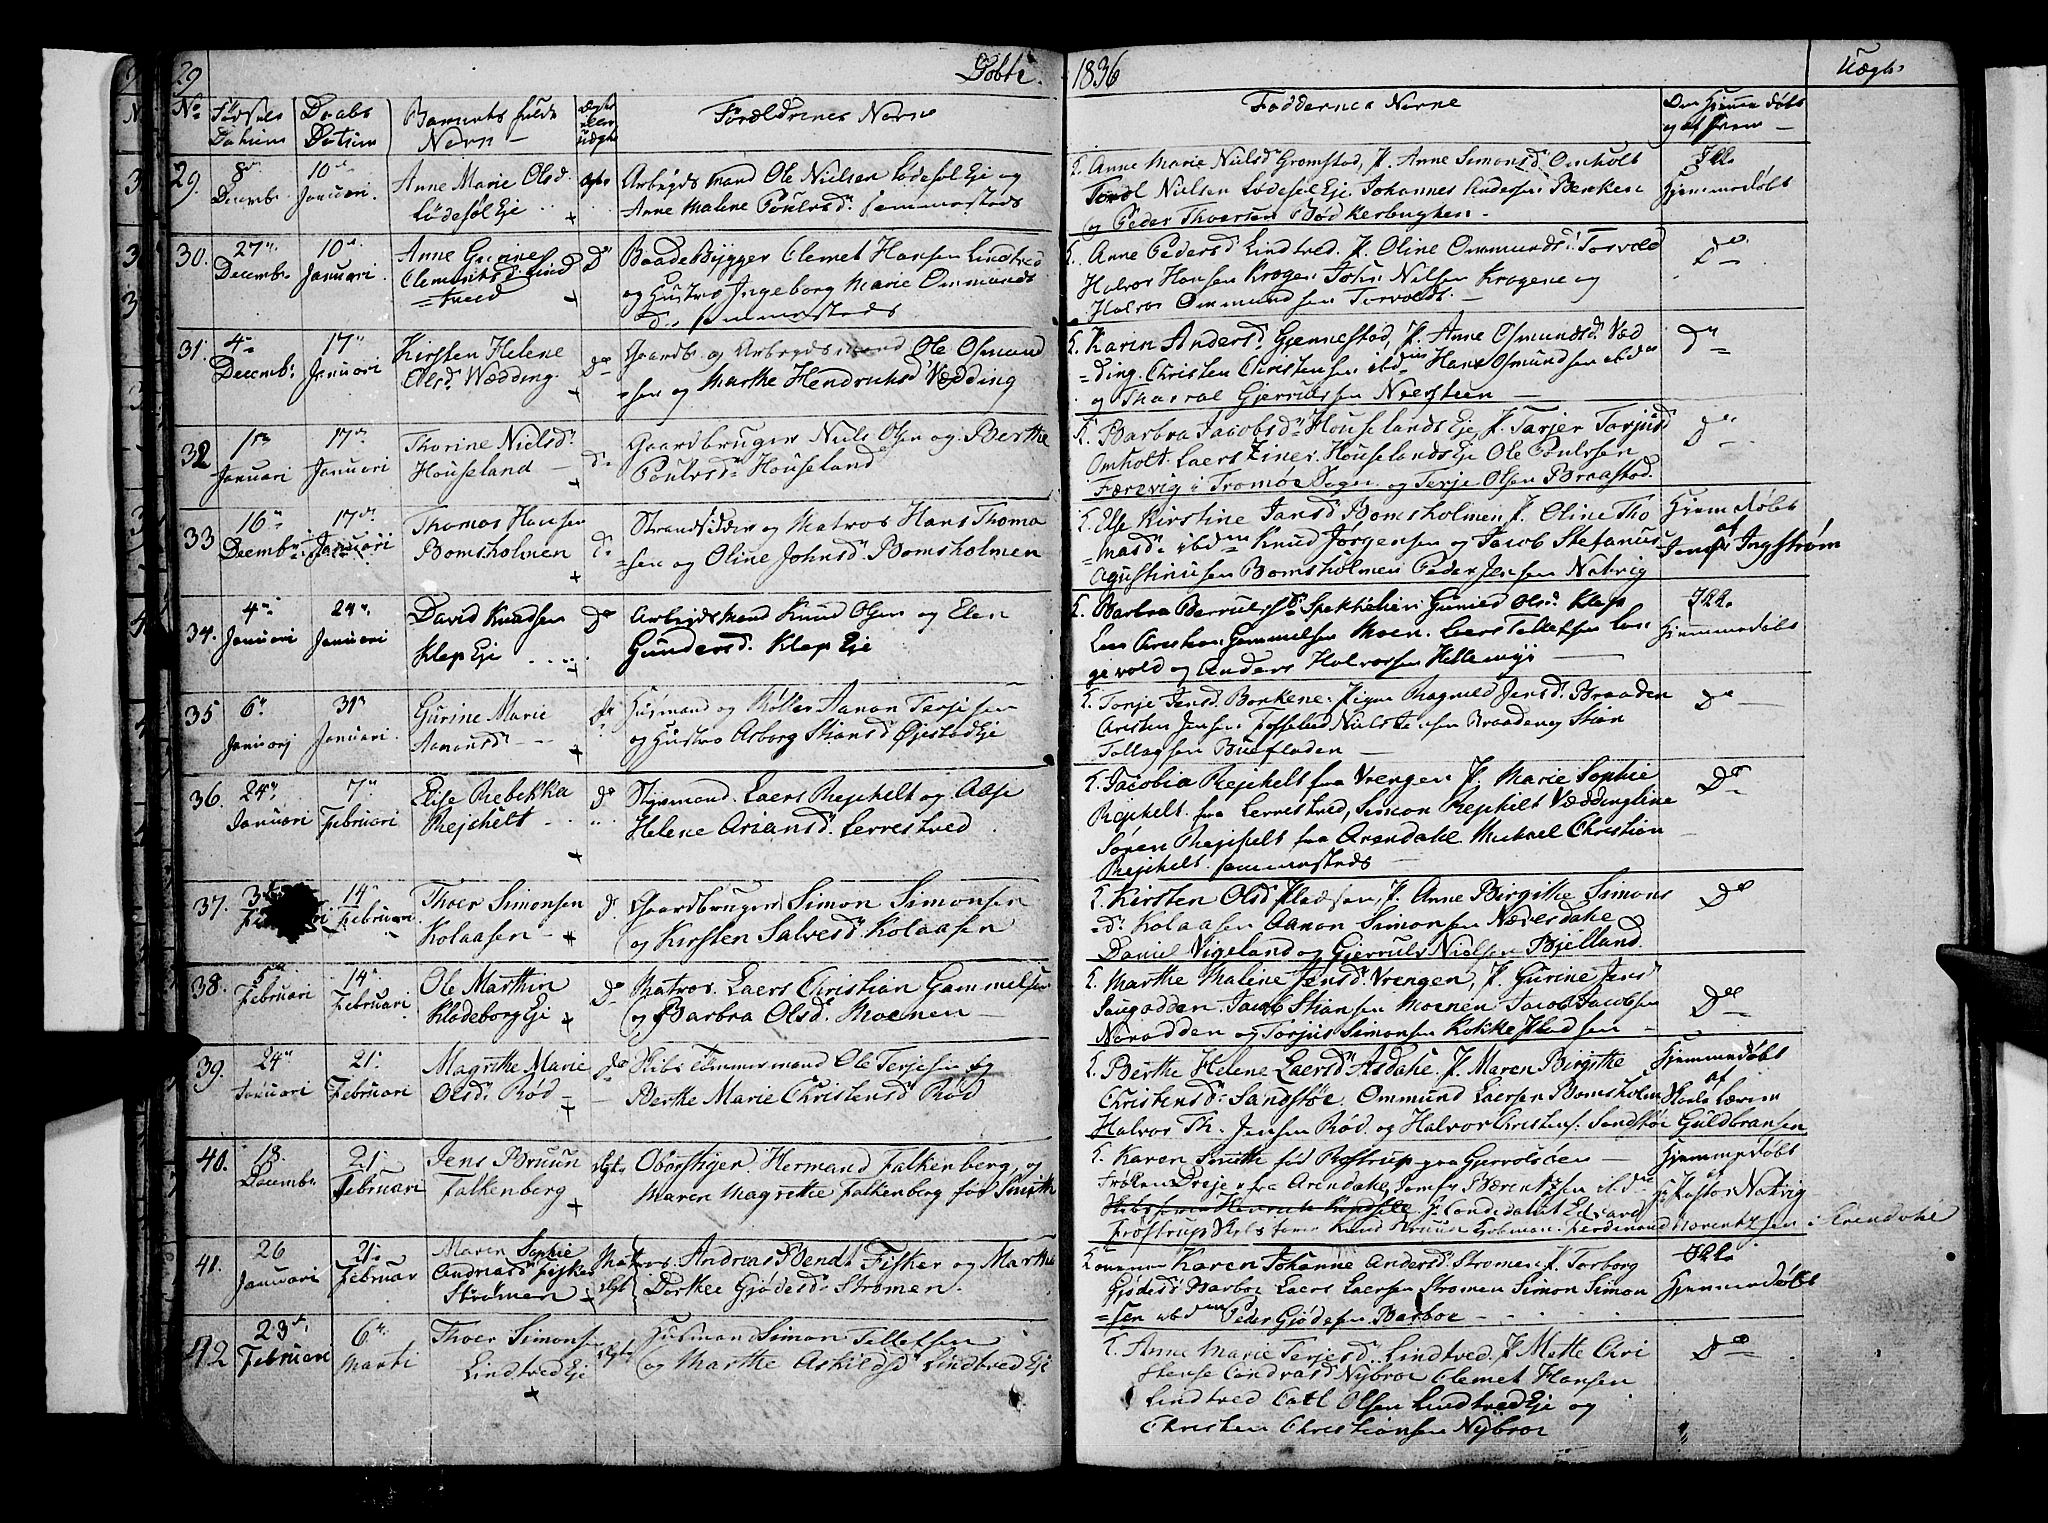 29 Døbte. 1836 Uægte
No Fødsels Datum Daabs Datum Barnets fulde Navn Ægte eller uægte Forældrenes Navne Faddernes Navne Om Hjemmedøbt og af hvem
29. 8de Decembr 10de Januari. Anne Marie Olsd. Lødesøl Eje Ægte Arbejds Mand Ole Nielsen Lødesøl Eje og
Anne Malene Poulsd. sammesteds
F. Anne Marie Nielsd. Gromstad, P. Anne Simonsd. Omholt
Nielsen Lødesøl Eje. Johannes Andersen Benken
og Peder Thorsen Bødkerbugken.
Ikke Hjemmedøbt
30. 27 Decembr 10de Januari Anne Gurine Clemetsd. Lindtved Do Baadebygger Clemet Hansen Lindtved
og Hustro Ingeborg Marie Ommunds
d. sammesteds
F. Anne Pedersd. Lindtved. P. Oline Ommundsd. Torvold
Halvor Hansen Krogen John Nilsen Krogene og
Halvor Ommundsen Torvold.
Do
31. 4 Decembr 17 Januari Kirsten Helene Olsd. Wædding. Do Gaardb. og Arbejdsmand Ole Osmund
sen og Marthe Hendriksd. Wædding
F. Karin Andersd. Gjennestad, P. Anne Osmundsd. Wæd
ding. Christen Christensen ibdm Hans Osmundsen ibdm
og Gjerrulsen Næsteen
Do
32 1 Januari 17 Januari Thorine Nielsd. Houseland Do Gaardbruger Niels Olsen og Berthe
Poulsd. Houseland
F. Barbra Jacobsd. Houselands Eje P. Tarjer Torjusd
Omholt. Laers Houselands Eje Ole Poulssen
Færvig i Tromøe Sogn og Terje Olsen Braastad.
Do
33 16 Decembr 17de Januari Thomas Hansen Bomsholmen Do Strandsidder og Matros Hans Thoma
sen og Oline Johnsd. Bomsholmen
F. Else Kirstine Jansd. Bomsholmen P. Oline Tho
masd. ibdm Knud Jørgensen og Jacob Stefanus
Agustinusen Bomsholmen Peder Jensen Natvig
Hjemmedøbt af Ingstrøm
34. 4 Januari 24 Januari David Knudsen Klap Eje Do Arbejdsmand Knud Olsen og Elen
Gundersd. Klap Eje
F. Barbra Gunild Olsd. Klap
Gammelsen Moen. Laers Tellefsen Lon
gevold og Anders Halvorsen Hellemyr
Ikke Hjemmedøbt
35 6 Januarj 31 Januari. Gurine Marie Aanonsd. Do Husmand og Møller Aanon Terjesen
og Hustro Asborg Stiansd. Øjestad Eje
F. Torje Jensd. Borkene. Pigen Ragnild Jensd. Braaden
Jensen Niels Jensen Braaden og Stian
Tollagsen Buefladen
Do
36. 24 Januari 7 Februari Elise Rebekka Rejchelt Do Styrmand. Laers Rejchelt og Else
Helene Ariansd. Lerrestved
F. Jacobia Rejchelt fra Vrengen P. Marie Sophie
Rejchelt fra Lerrestved, Simon Rejchelt Væddinglien
Søren Rejchelt fra Arendahl. Michael Christian
Rejchelt sammesteds
Do
37. 3 Februari 14 Februari Thoer Simonsen Kolaasen Do Gaardbruger Simon Simonsen
og Kirsten Salvesd. Kolaasen
F. Kirsten Olsd. Pladsen, P. Anne Birgithe Simons
d. Kolaasen Aanon Simonsen Næresdahe &
Daniel Vigeland og Gjerruls Nielsen Bjelland.
Do
38. 5 Februari 14 Februari Ole Marthin Klodeborg Eje Do Matros. Laers Christian Gammelsen
og Barbra Olsd. Moenen
F. Marthe Malene Jensd. Vrengen, P. Gurine Jensd
Jacob Stiansen Moenen Jacob Jacobsen
Noradden og Torjus Simonsen
Do
39. 24 Januari 21 Februari Magrethe Marie Olsd. Rød Do Skibs Tømmermand Ole Terjesen og
Berthe Marie Christensd. Rød
F. Berthe Helene Laersd. Asdahe. P. Maren Birgithe
Christensd. Sandstøe, Ommund Laersen Bomsholm
Halvor Th. Jensen Rød og Halvor Christens. Sandstøe
Hjemmedøbt af Skolelærer Guldbransen
40. 18. Decembr 21 Februari Jens Bruun Falkenberg Ægte Oberstiger Hermand Falkenberg, og
Maren Magrethe Falkenberg før Smith
F. Karen Smith fød Rostrup paa Gjervolsøen
Frøken fra Arendahe, Jomfr Bærentzen ibdm
Hjemmedøbt af Hr Pastor Natvig
i Arendahl
41. 26 Januari 21 Februar Maren Sophie Andreasd. Fisker Strømen Ægt Matros. Andreas Bendt Fisker og Marthe
Dorthee Gjødesd. Strømen.
Karen Johanne Andersd. Strømen P. Torborg
Gjødesd. Barboe Laers Laersen Strømen Simon Simon
sen ibdm Peder Gjødesen Barboe
Ikke Hjemmedøbt
42 23 Februari 6 Marti Thoer Simonsen Lindtved Eje Ægte Husmand Simon Tellefsen
og Marthe Askildsd. Lindtved Eje
F. Anne Marie Terjesd. Lindtved. P. Mette Chri
stense Nybroe Clemet Hansen
Lindtved Carl Olsen Lindtved Eje og
Christen Christiansen Nybroe
Do